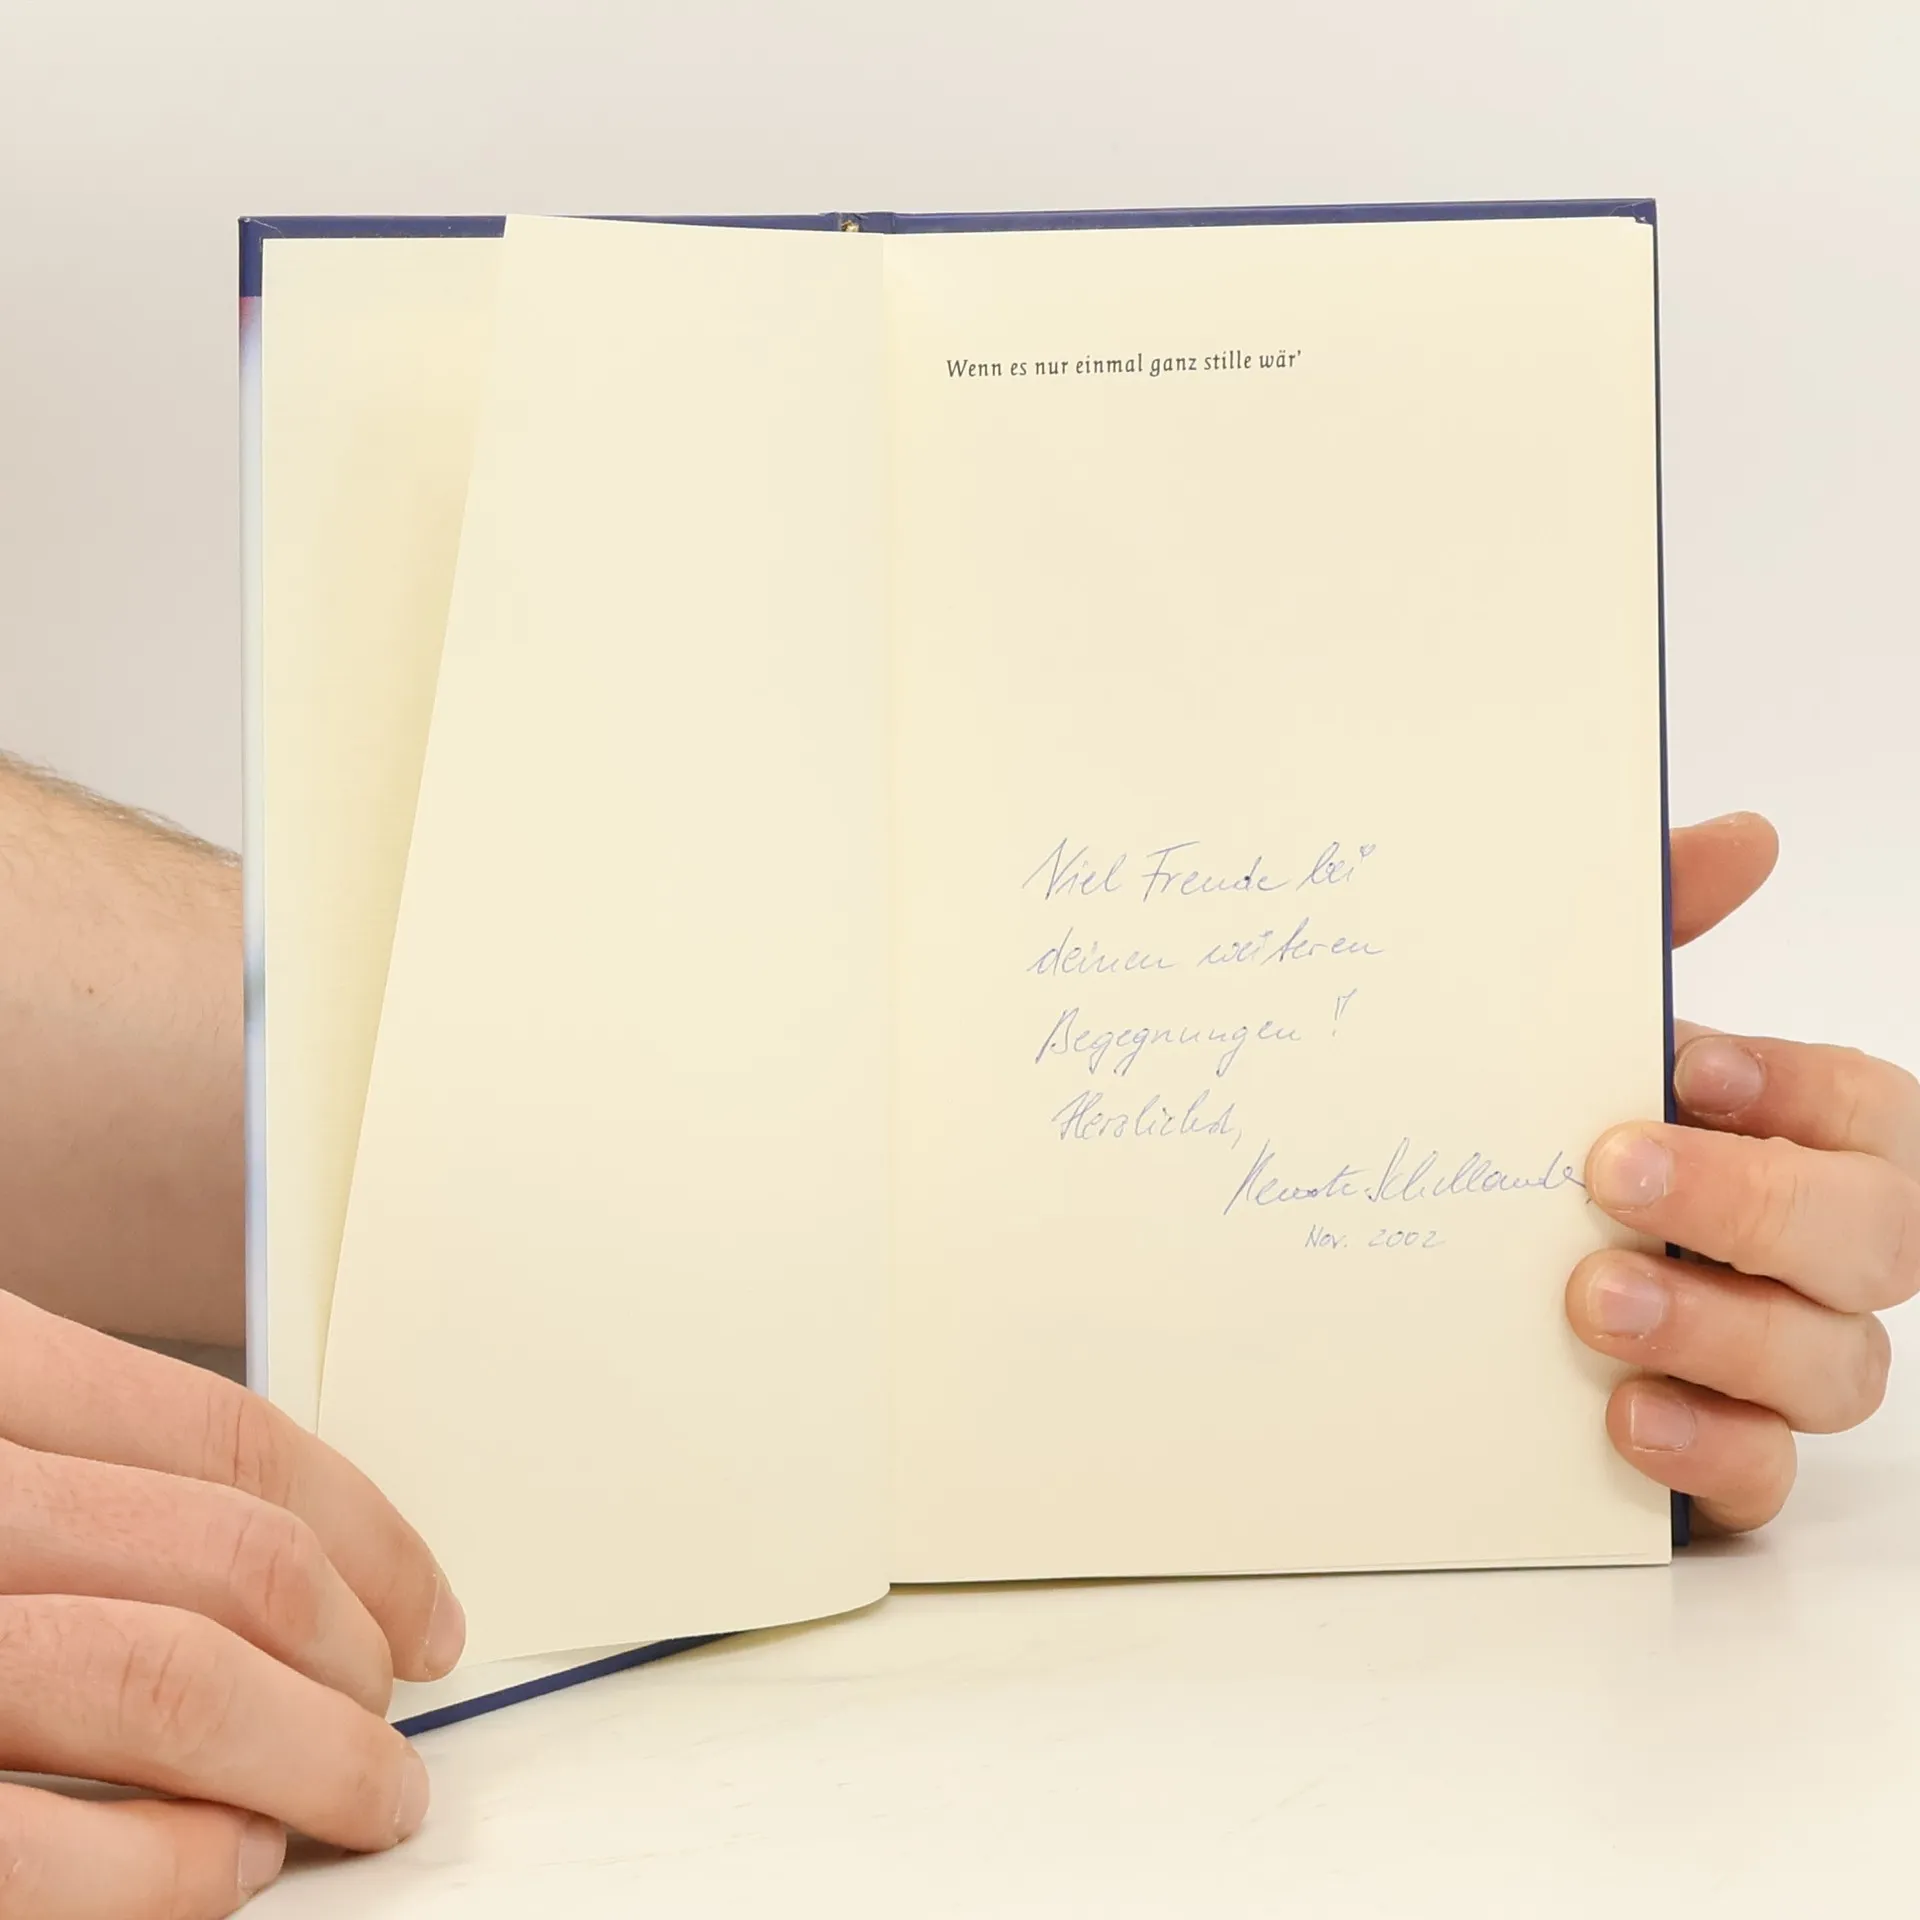 Wenn es nur einmal ganz stille wär’
Viel Freude bei
deinen weiteren
Begegnungen!
Herzlichst,
Nov. 2002